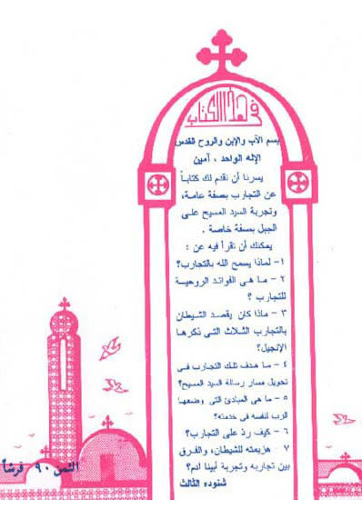 في هذا الكتاب
بسم الآب والإبن والروح القدس
الإله الواحد ، آمين
يسرنا أن نقدم لك كتاباً
عن التجارب بصفة عامة،
وتجربة السيد المسيح على
الجبل بصفة خاصة .
يمكنك أن تقرأ فيه عن :
١- لماذا يسمح الله بالتجارب؟
٢ - ما هى الفوائد الروحية
للتجارب ؟
٣ - ماذا كان يقصد الشيطان
بالتجارب الثلاث التى ذكرها
الإنجيل؟
٤ - ما هدف تلك التجارب فى
تحويل مسار رسالة السيد المسيح؟
٥ - ما هى المبادئ التى وضعها
الرب لنفسه فى خدمته؟
٦ - كيف رد على التجارب؟
٧ - هزيمته للشيطان، والفرق
بين تجاربه وتجربة أبينا آدم؟
شنوده الثالث
الثمن ٩٠ قرشاً